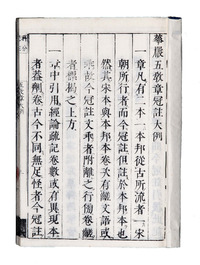 華嚴五教章冠註大例
一章凡有二本一本邦從古所流者一宋
朝所行者而今冠註但註於本邦本也
然其宋本與本邦本卷次有離文語或
乘故今冠註文乘者附離之行間卷離
者標揭之上方
一章中引用經論疏記卷數或有異現本
者蓋刊卷古今不同無足怪者今冠註